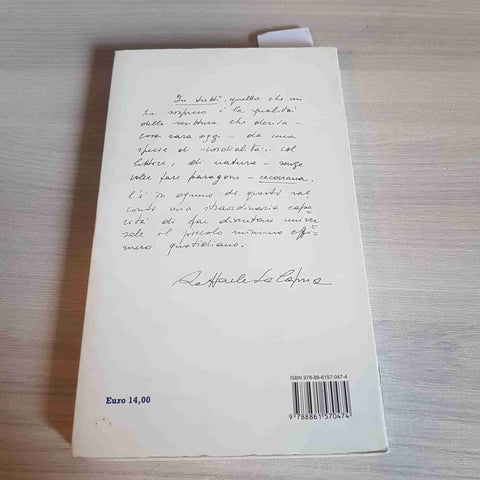 In tutti, quello che mi
ha sorpreso è la qualità
della scrittura che deriva –
cosa rara oggi – da una
specie di "cordialità" col
lettore, di natura – senza
voler fare paragoni – cecoviana.
C'è in ognuno di questi rac
conti una straordinaria capa
cità di far diventare univer
sale il piccolo minimo effi=
mero quotidiano.
Raffaele La Capria
ISBN 978-88-6157-047-4
Euro 14,00
9 788861 570474